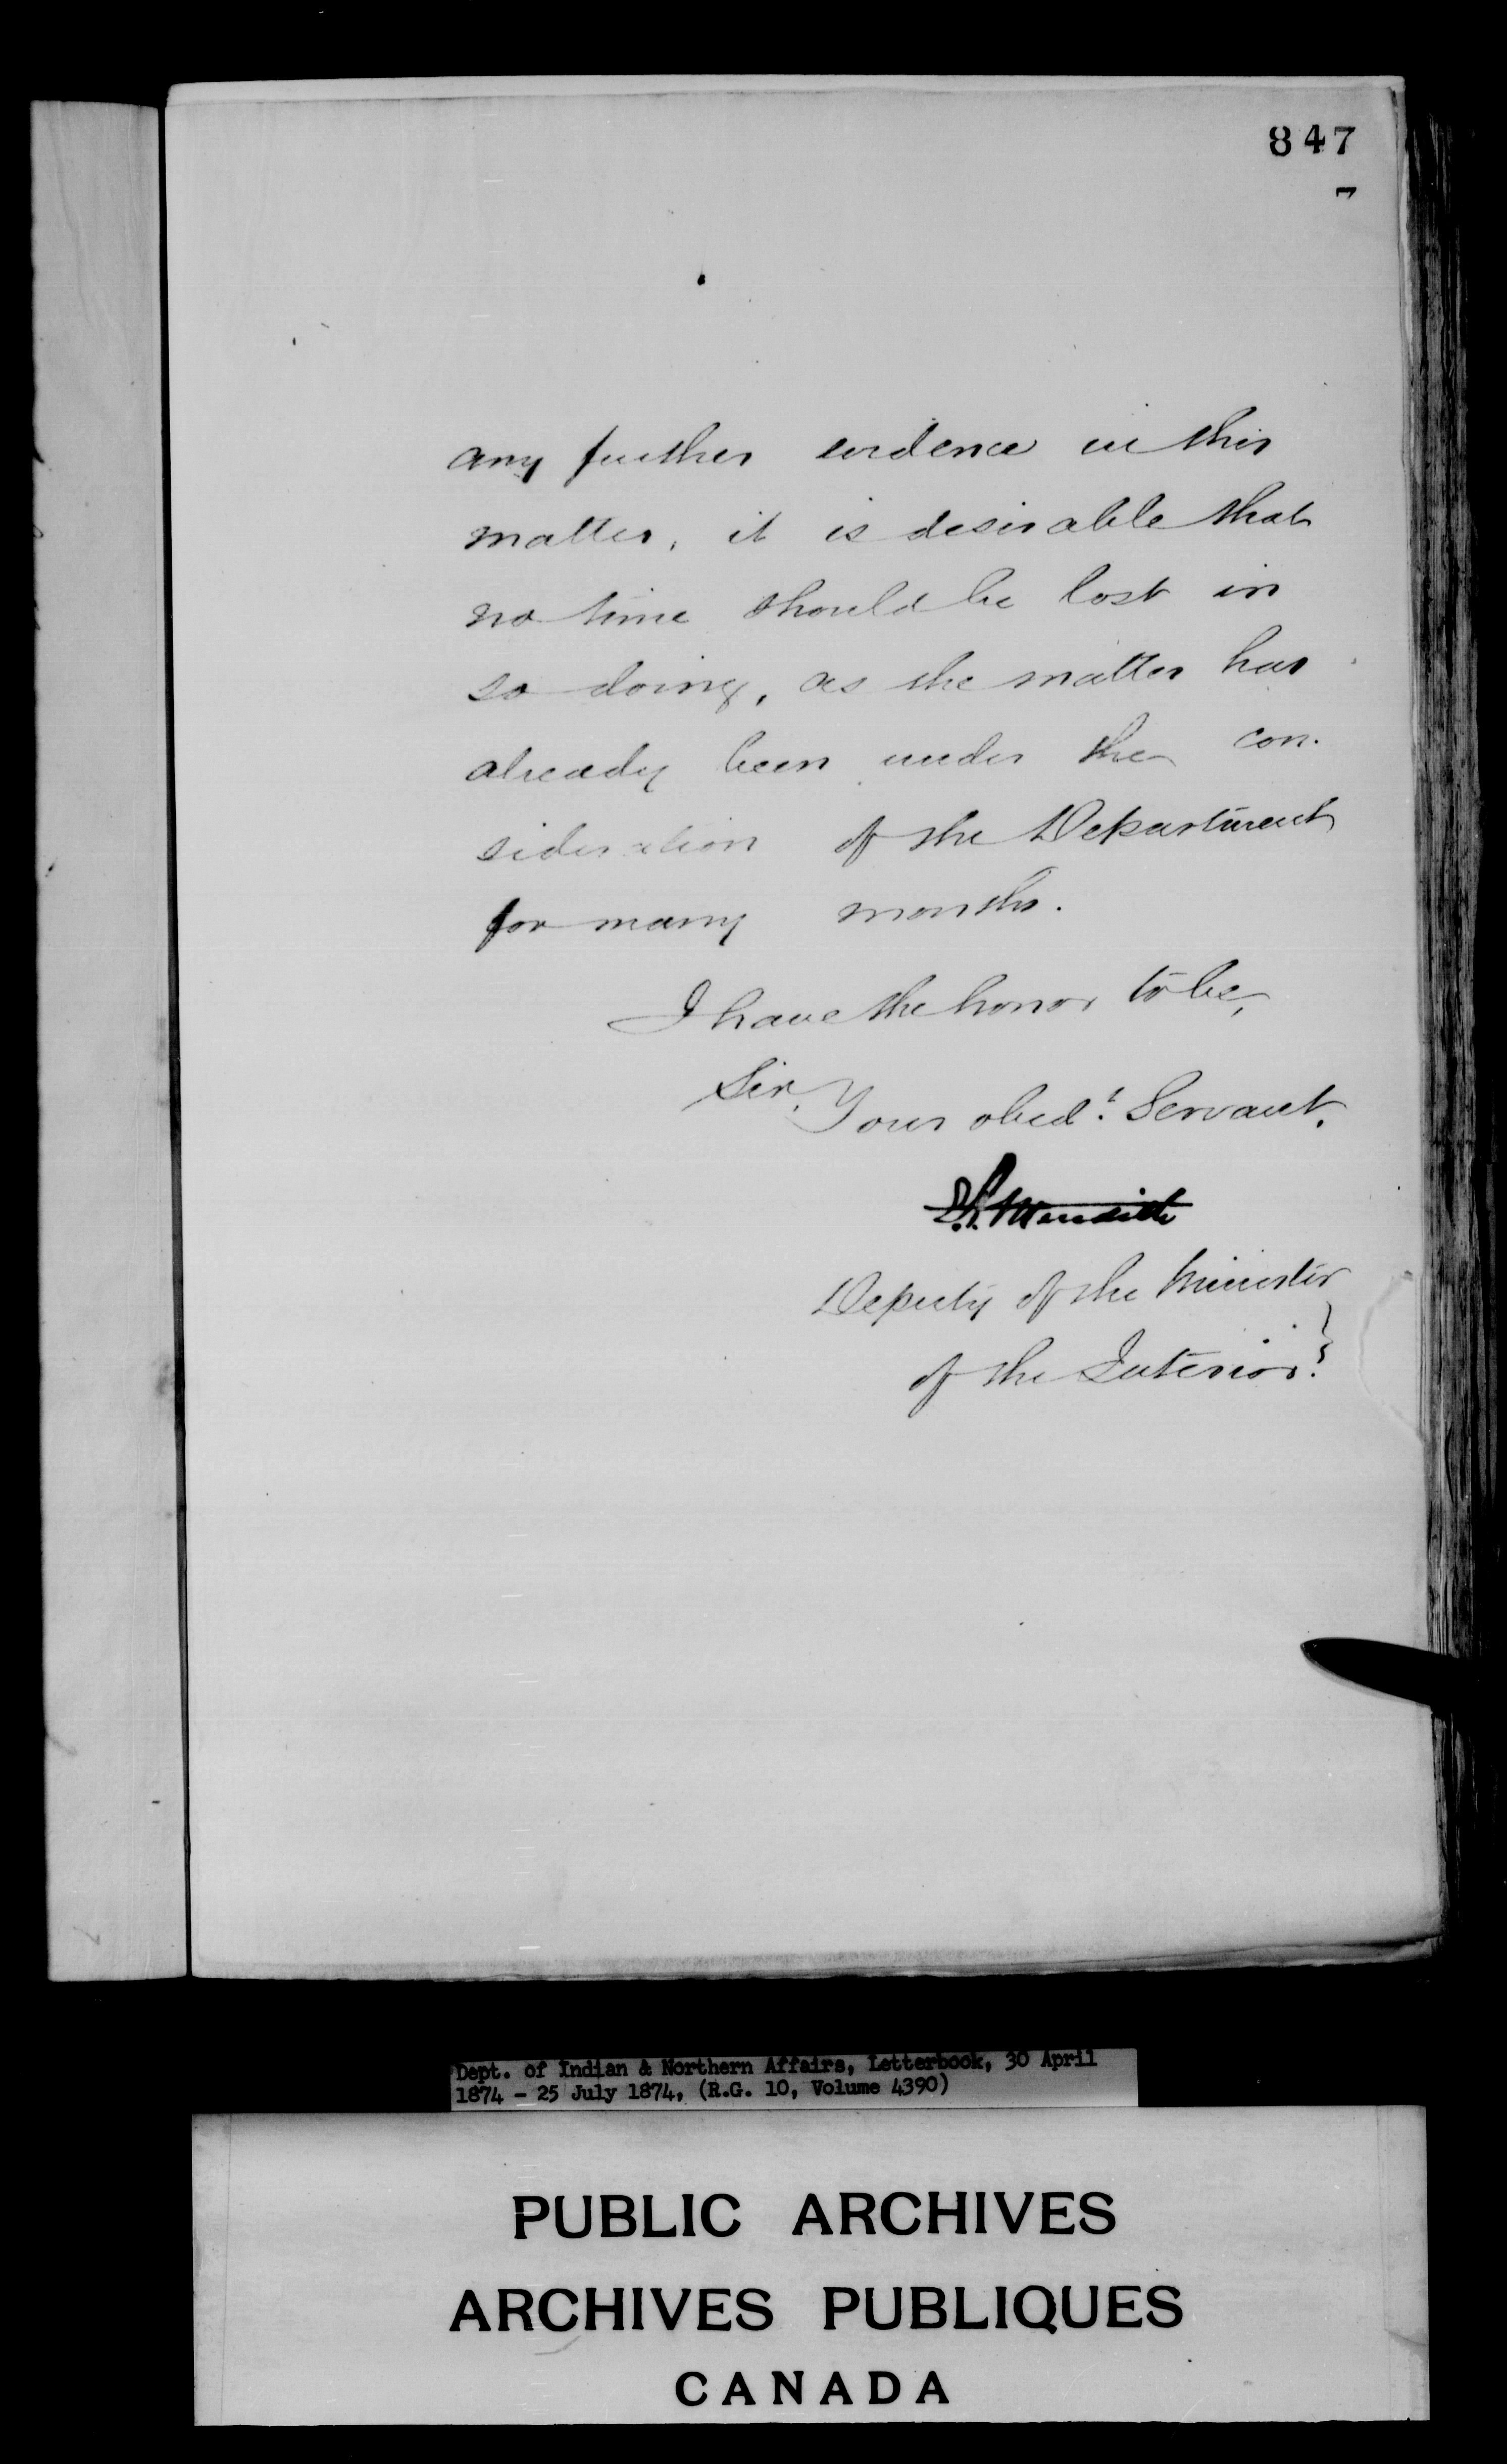 847
7
any further evidence in this
matter, it is desirable that
no time should be lost in
so doing, as the matter has
already been under the con-
sideration of the Department
for many months.
I have the honor to be,
Sir,
Your obedt. Servant.
Meredith
Deputy of the Minister
of the Interior.
Dept. of Indian & Northern Affairs, Letterbook, 30 April
1874 - 25 July 1874, (R.G. 10, Volume 4390)
PUBLIC ARCHIVES
ARCHIVES PUBLIQUES
CANADA